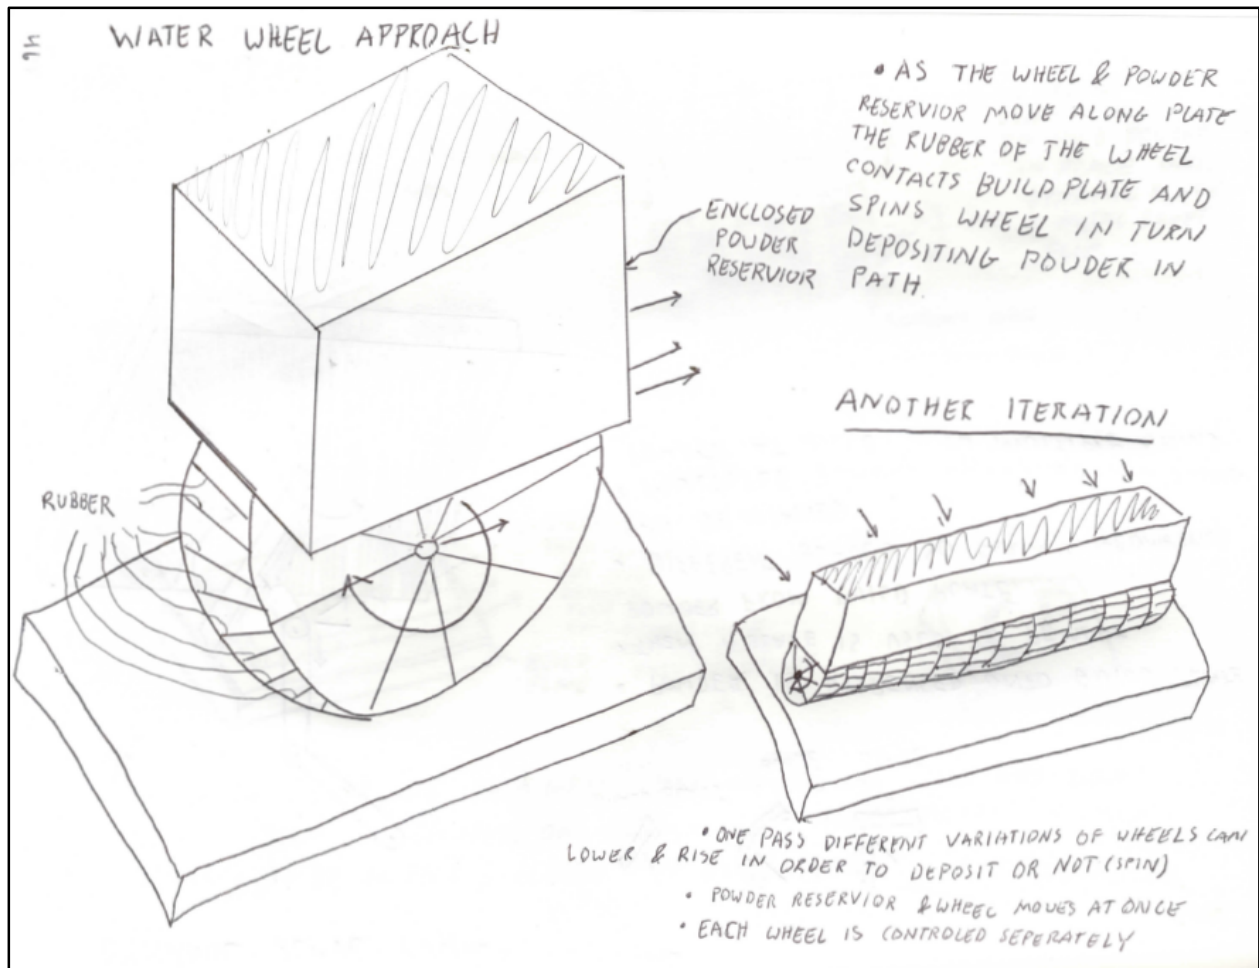 46
WATER WHEEL APPROACH
• AS THE WHEEL & POWDER
RESERVIOR MOVE ALONG PLATE
THE RUBBER OF THE WHEEL
CONTACTS BUILD PLATE AND
SPINS WHEEL IN TURN
DEPOSITING POWDER IN
PATH.
ENCLOSED
POWDER
RESERVIOR
RUBBER
ANOTHER ITERATION
• ONE PASS DIFFERENT VARIATIONS OF WHEELS CAN
LOWER & RISE IN ORDER TO DEPOSIT OR NOT (SPIN)
• POWDER RESERVIOR & WHEEL MOVES AT ONCE
• EACH WHEEL IS CONTROLED SEPERATELY